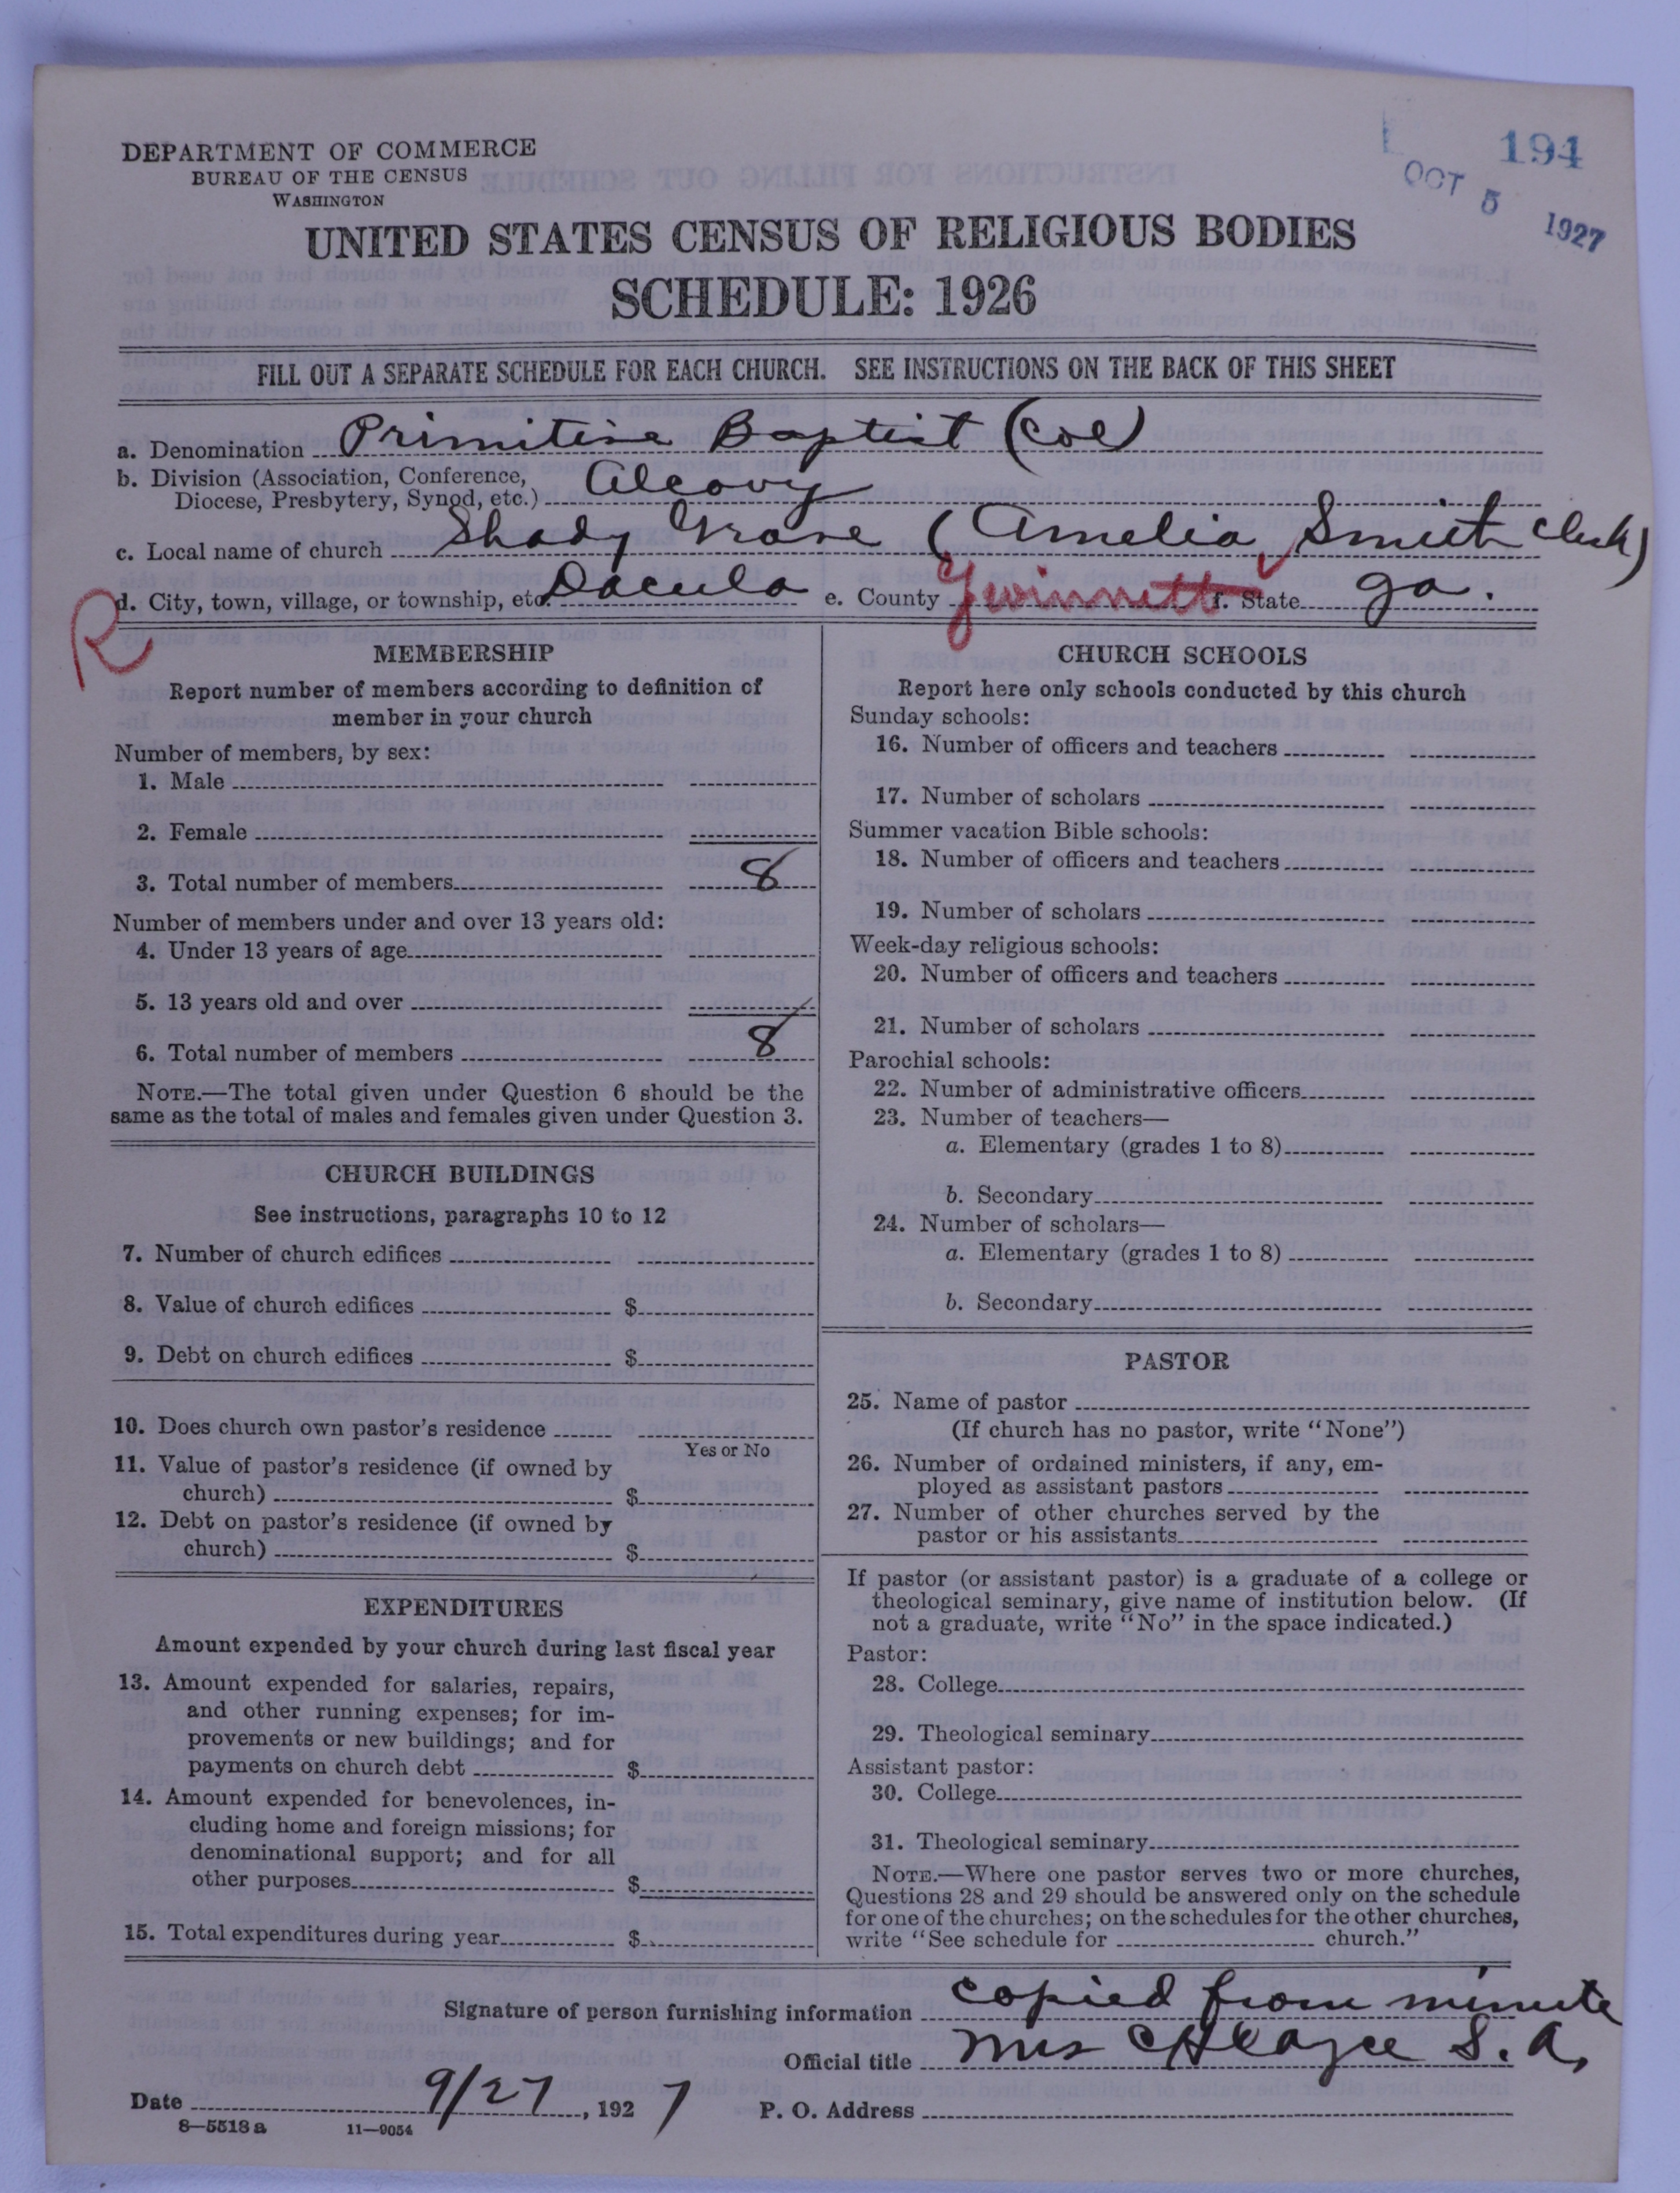 194
OCT 5 1927
DEPARTMENT OF COMMERCE
BUREAU OF THE CENSUS
WASHINGTON
UNITED STATES CENSUS OF RELIGIOUS BODIES
SCHEDULE: 1926
FILL OUT A SEPARATE SCHEDULE FOR EACH CHURCH. SEE INSTRUCTIONS ON THE BACK OF THIS SHEET
a. Denomination Primitive Baptist (Col)
b. Division (Association, Conference,
Diocese, Presbytery, Synod, etc.) Alcovy
c. Local name of church Shady Grove (Amelia Smith Clerk)
d. City, town, village, or township, etc. Dacula e. County Gwinnett f. State Ga.
R
MEMBERSHIP
Report number of members according to definition of
member in your church
Number of members, by sex:
1. Male
2. Female
3. Total number of members 8
Number of members under and over 13 years old:
4. Under 13 years of age
5. 13 years old and over
6. Total number of members 8
NOTE.—The total given under Question 6 should be the
same as the total of males and females given under Question 3.
CHURCH BUILDINGS
See instructions, paragraphs 10 to 12
7. Number of church edifices
8. Value of church edifices $
9. Debt on church edifices $
10. Does church own pastor's residence
Yes or No
11. Value of pastor's residence (if owned by
church) $
12. Debt on pastor's residence (if owned by
church) $
EXPENDITURES
Amount expended by your church during last fiscal year
13. Amount expended for salaries, repairs,
and other running expenses; for im-
provements or new buildings; and for
payments on church debt $
14. Amount expended for benevolences, in-
cluding home and foreign missions; for
denominational support; and for all
other purposes $
15. Total expenditures during year $
CHURCH SCHOOLS
Report here only schools conducted by this church
Sunday schools:
16. Number of officers and teachers
17. Number of scholars
Summer vacation Bible schools:
18. Number of officers and teachers
19. Number of scholars
Week-day religious schools:
20. Number of officers and teachers
21. Number of scholars
Parochial schools:
22. Number of administrative officers
23. Number of teachers—
a. Elementary (grades 1 to 8)
b. Secondary
24. Number of scholars—
a. Elementary (grades 1 to 8)
b. Secondary
PASTOR
25. Name of pastor
(If church has no pastor, write "None")
26. Number of ordained ministers, if any, em-
ployed as assistant pastors
27. Number of other churches served by the
pastor or his assistants
If pastor (or assistant pastor) is a graduate of a college or
theological seminary, give name of institution below. (If
not a graduate, write "No" in the space indicated.)
Pastor:
28. College
29. Theological seminary
Assistant pastor:
30. College
31. Theological seminary
NOTE.—Where one pastor serves two or more churches,
Questions 28 and 29 should be answered only on the schedule
for one of the churches; on the schedules for the other churches,
write "See schedule for church."
Signature of person furnishing information copied from minute
Official title Mrs S. A.
Date 9/27, 1927 P. O. Address
8—5518 a 11—9054